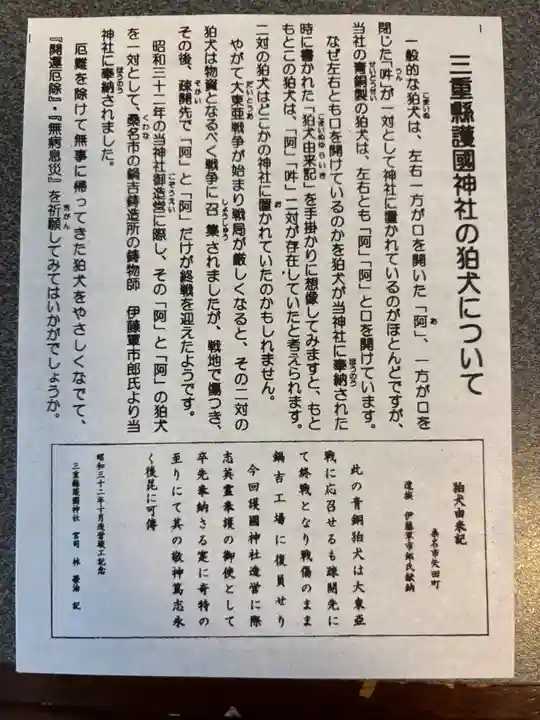 三重縣護國神社の狛犬について
一般的な狛犬は、左右一方が口を開いた「阿」、一方が口を
閉じた「吽」が一対として神社に置かれているのがほとんどですが、
当社の青銅製の狛犬は、左右とも「阿」「阿」と口を開けています。
なぜ左右とも口を開けているのかを狛犬が当神社に奉納された
時に書かれた「狛犬由来記」を手掛かりに想像してみますと、もと
もとこの狛犬は、「阿」「吽」二対が存在していたと考えられます。
二対の狛犬はどこかの神社に置かれていたのかもしれません。
やがて大東亜戦争が始まり戦局が厳しくなると、その二対の
狛犬は物資となるべく戦争に召集されましたが、戦地で傷つき、
その後、疎開先で「阿」と「阿」だけが終戦を迎えたようです。
昭和三十二年の当神社御造営に際し、その「阿」と「阿」の狛犬
を一対として、桑名市の鍋吉鋳造所の鋳物師 伊藤軍市郎氏より当
神社に奉納されました。
厄難を除けて無事に帰ってきた狛犬をやさしくなでて、
『開運厄除』・『無病息災』を祈願してみてはいかがでしょうか。
狛犬由来記
桑名市矢田町
遺族 伊藤軍市郎氏献納
此の青銅狛犬は大東亞
戦に応召せるも疎開先に
て終戦となり戦傷のまま
鍋吉工場に復員せり
今回護國神社造営に際
し英霊奉護の御使として
卒先奉納さる寔に奇特の
至りにて其の敬神篤志永
く後昆に可傳
昭和三十二年十月造営竣工記念
三重縣護國神社 宮司 林 榮治 記